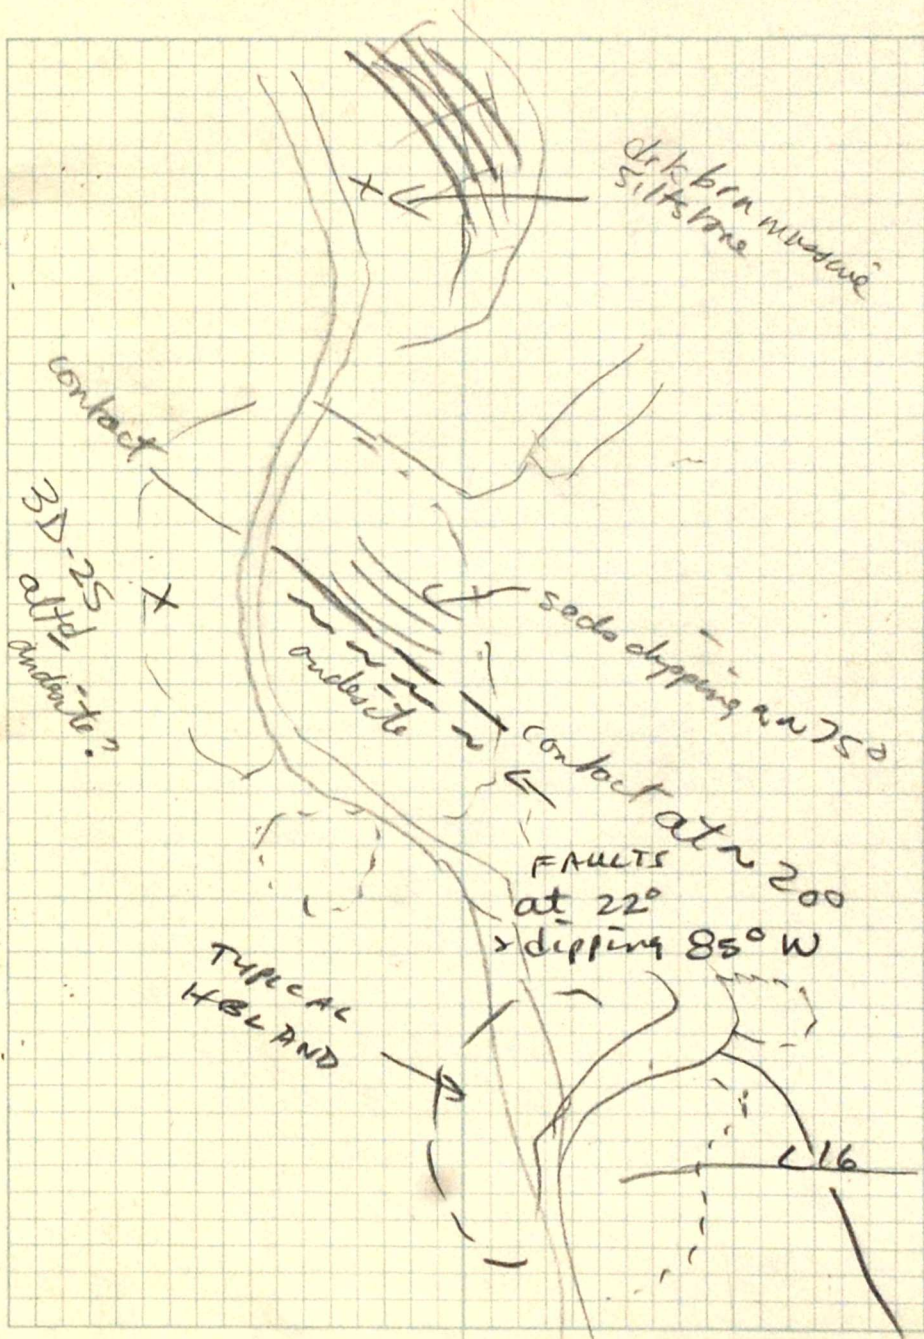 drk brn massive
siltstone
contact
3D-25
altd
andesite?
seds dipping ~ 75°
andesite
contact at ~ 200
FAULTS
at 22°
dipping 85° W
TYPICAL
HBL AND
L16